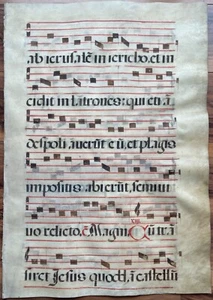 ab ierusalē in iericho, et in
cidit in latrones: qui etiā
despoliaverūt eū, et plagis
impositis abierūt, semivi
vo relicto. Magnif. Cū intra
ret Iesus quoddā castellū